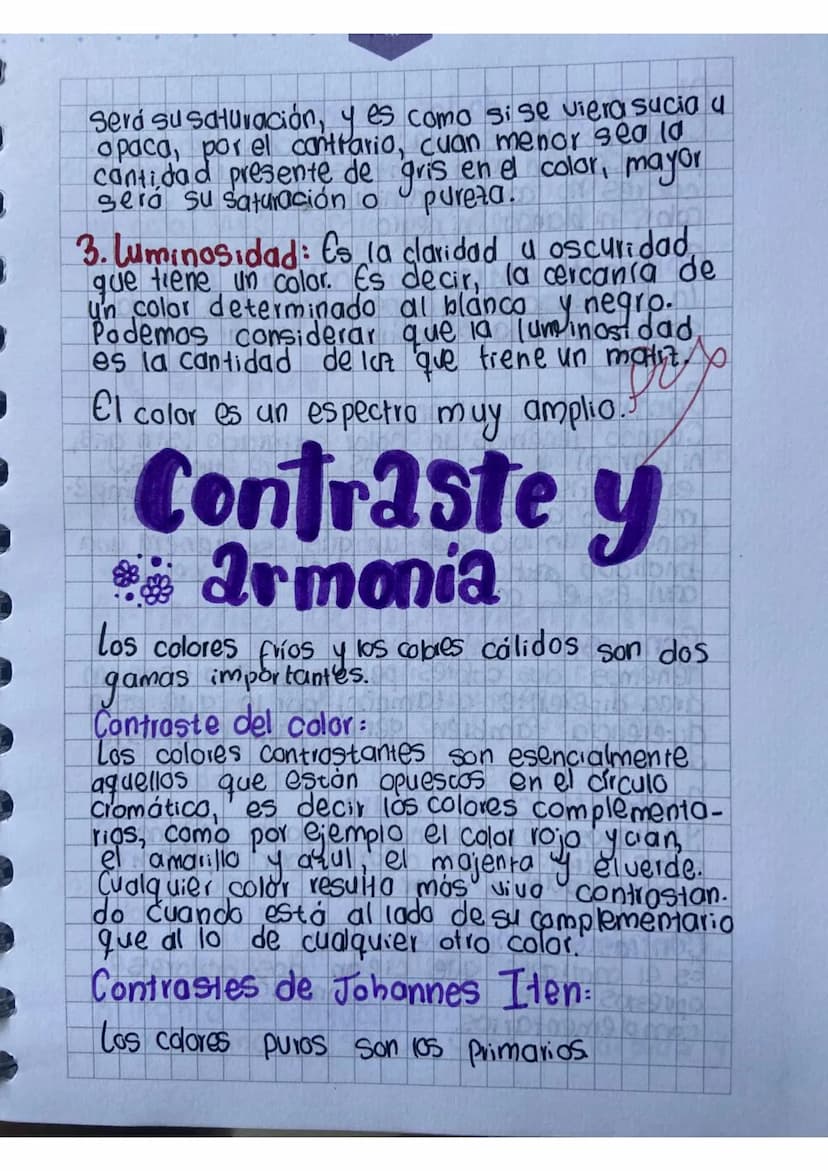 será su saturación, y es como si se viera sucia u
opaca, por el contrario, cuan menor sea la
cantidad presente de gris en el color, mayor
será su saturación o pureza.
3. Luminosidad: Es la claridad u oscuridad
que tiene un color. Es decir, la cercanía de
un color determinado al blanco y negro.
Podemos considerar que la luminosidad
es la cantidad de luz que tiene un matiz.
El color es un espectro muy amplio.
Contraste y
armonia
Los colores fríos y los colores cálidos son dos
gamas importantes.
Contraste del color:
Los colores contrastantes son esencialmente
aquellos que están opuescos en el círculo
cromático, es decir los colores complementa-
rios, como por ejemplo el color rojo y cian,
el amarillo y azul, el majenta y el verde.
Cualquier color resulta más vivo contrastan-
do cuando está al lado de su complementario
que al lo de cualquier otro color.
Contrastes de Johannes Iten:
Los colores puros son los primarios